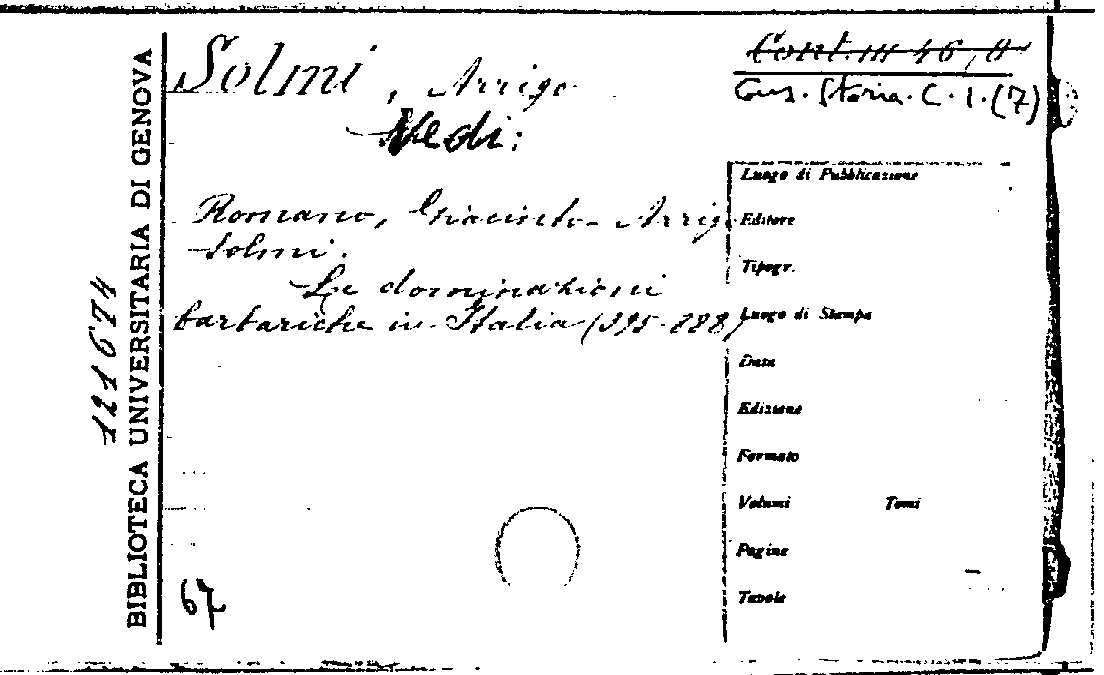 Solmi, Arrigo
Vedi:
Romano, Giacinto - Arrigo
Solmi.
Le dominazioni
barbariche in Italia (395-888)
Cont. III 46, 8
Cons. Storia. C. 1. (7)
Luogo di Pubblicazione
Editore
Tipogr.
Luogo di Stampa
Data
Edizione
Formato
Volumi Tomi
Pagine
Tavole
67
121674
BIBLIOTECA UNIVERSITARIA DI GENOVA